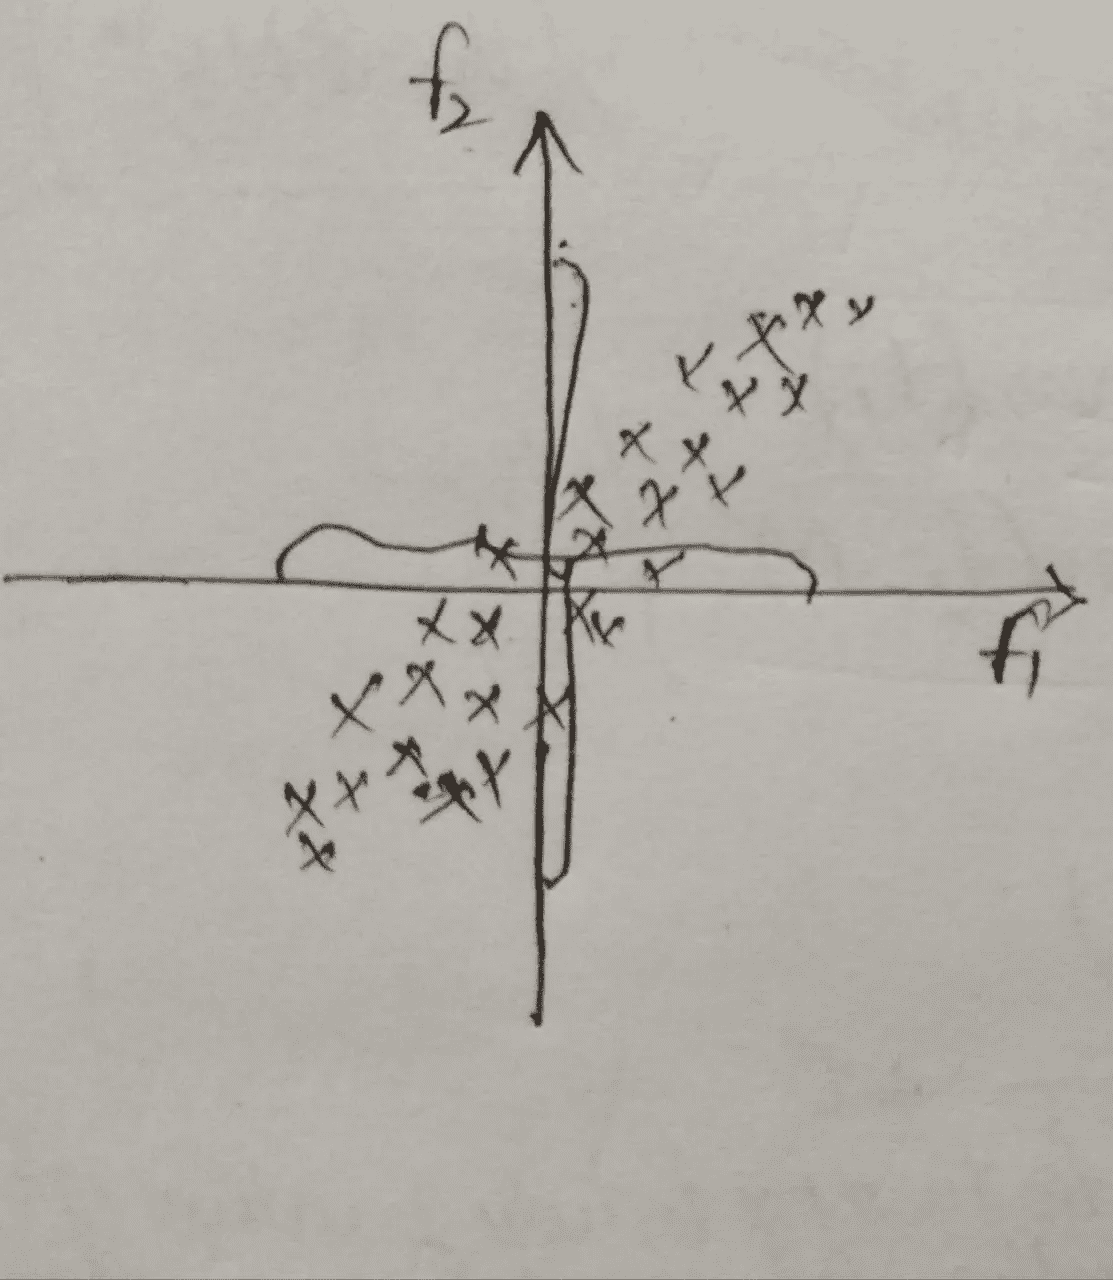 f2
f1